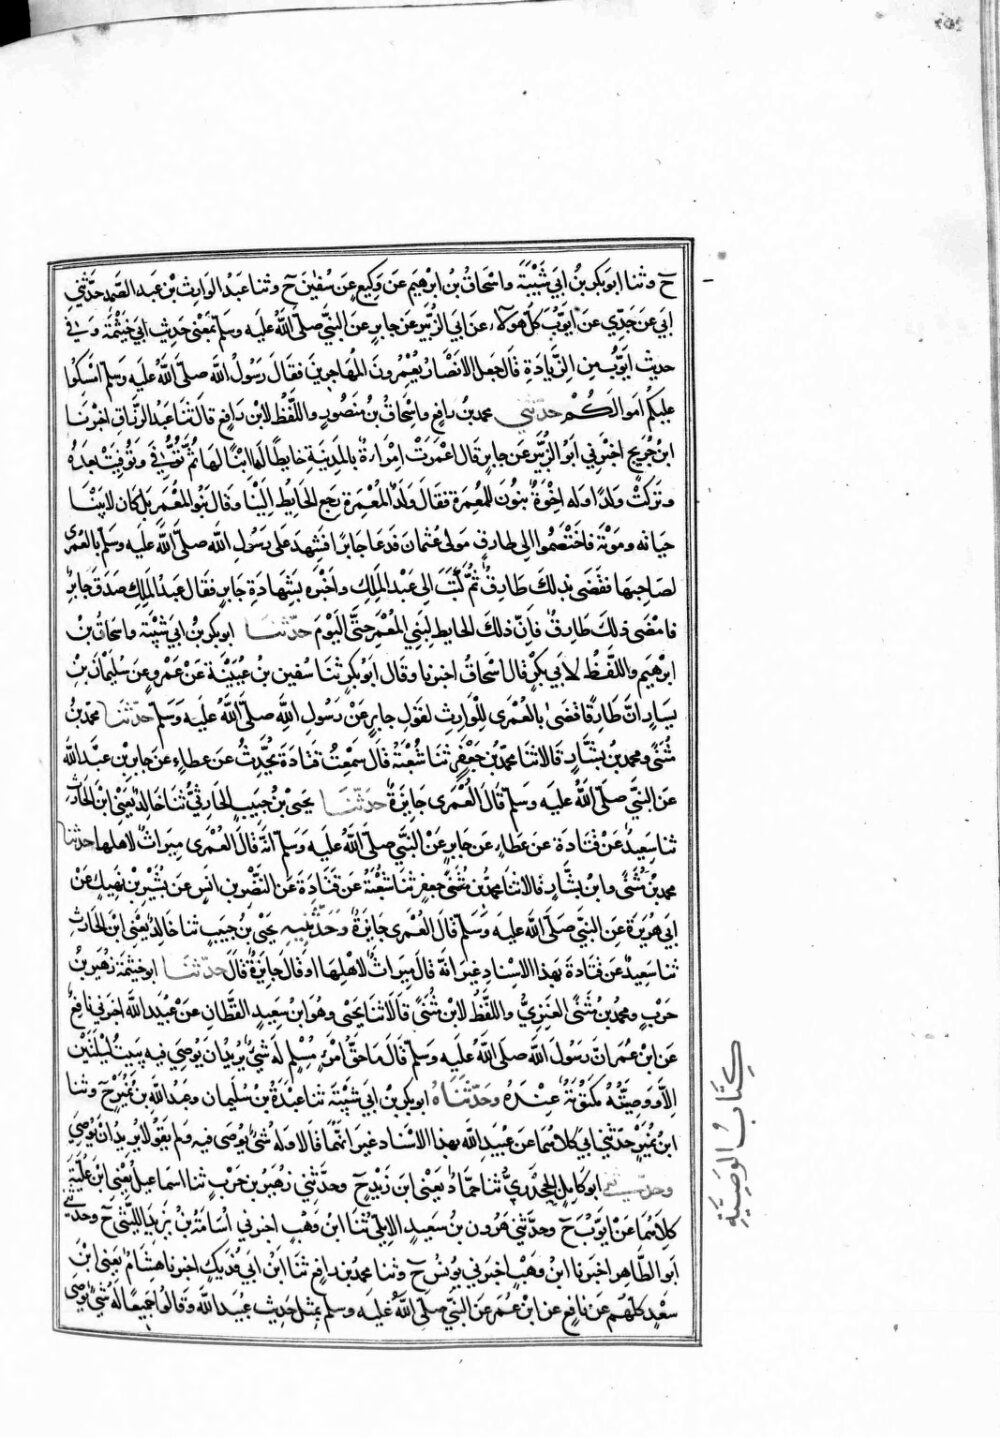 ح وثنا ابوبكر بن ابي شيبة واسحاق بن ابرهيم عن وكيع عن سفين ح وثنا عبد الوارث بن عبد الصمد حدثني
ابي عن جدي عن ايوب كل هولاء عن ابي الزبير عن جابر عن النبي صلى الله عليه وسلم بمعنى حديث ابي خيثمة وفي
حديث ايوب من الزيادة قال جعل الانصار يعمرون المهاجرين فقال رسول الله صلى الله عليه وسلم امسكوا
عليكم اموالكم حدثني محمد بن رافع واسحاق بن منصور واللفظ لابن رافع قال ثنا عبد الرزاق اخبرنا
ابن جريج اخبرني ابو الزبير عن جابر قال اعمرت امراة بالمدينة حايطا لها ابنا لها ثم توفي وتوفيت بعده
وتركت ولدا وله اخوة بنون للمعمرة فقال ولد المعمرة رجع الحايط الينا وقال بنو المعمر بل كان لابينا
حياته وموته فاختصموا الى طارق مولى عثمان فدعا جابرا فشهد على رسول الله صلى الله عليه وسلم بالعمرى
لصاحبها فقضى بذلك طارق ثم كتب الى عبد الملك واخبره بشهادة جابر فقال عبد الملك صدق جابر
فامضى ذلك طارق فان ذلك الحايط لبني المعمر حتى اليوم حدثنا ابوبكر بن ابي شيبة واسحاق بن
ابرهيم واللفظ لابي بكر قال اسحاق اخبرنا وقال ابوبكر ثنا سفين بن عيينة عن عمرو عن سليمان بن
يسار ان طارقا قضى بالعمرى للوارث لقول جابر عن رسول الله صلى الله عليه وسلم حدثنا محمد بن
مثنى ومحمد بن بشار قالا ثنا محمد بن جعفر ثنا شعبة قال سمعت قتادة يحدث عن عطاء عن جابر بن عبد الله
عن النبي صلى الله عليه وسلم قال العمرى جايزة حدثنا يحيى بن حبيب الحارثي ثنا خالد يعني ابن الحارث
ثنا سعيد عن قتادة عن عطاء عن جابر عن النبي صلى الله عليه وسلم انه قال العمرى ميراث لاهلها حدثنا
محمد بن مثنى وابن بشار قالا ثنا محمد بن مثنى جعفر ثنا شعبة عن قتادة عن النضر بن انس عن بشير بن نهيك عن
ابي هريرة عن النبي صلى الله عليه وسلم قال العمرى جايزة وحدثنيه يحيى بن حبيب ثنا خالد يعني ابن الحارث
ثنا سعيد عن قتادة بهذا الاسناد غير انه قال ميراث لاهلها او قال جايزة قال حدثنا ابو خيثمة زهير بن
حرب ومحمد بن مثنى العنزي واللفظ لابن مثنى قالا ثنا يحيى وهو ابن سعيد القطان عن عبيد الله اخبرني نافع
عن ابن عمر ان رسول الله صلى الله عليه وسلم قال ما حق امرء مسلم له شي يريد ان يوصي فيه يبيت ليلتين
الا ووصيته مكتوبة عنده وحدثناه ابوبكر بن ابي شيبة ثنا عبدة بن سليمان وعبد الله بن نمير ح وثنا
ابن نمير حدثني ابي كلاهما عن عبيد الله بهذا الاسناد غير انهما قالا وله شي يوصي فيه ولم يقولا يريد ان يوصي
وحدثني ابو كامل الجحدري ثنا حماد يعني ابن زيد ح وحدثني زهير بن حرب ثنا اسماعيل يعني ابن علية
كلاهما عن ايوب ح وحدثني هرون بن سعيد الايلي ثنا ابن وهب اخبرني اسامة بن زيد الليثي ح وحدثني
ابو الطاهر اخبرنا ابن وهب اخبرني يونس ح وثنا محمد بن رافع ثنا ابن ابي فديك اخبرنا هشام يعني ابن
سعد كلهم عن نافع عن ابن عمر عن النبي صلى الله عليه وسلم بمثل حديث عبيد الله وقالوا جميعا له شي يوصي
كتاب الوصية